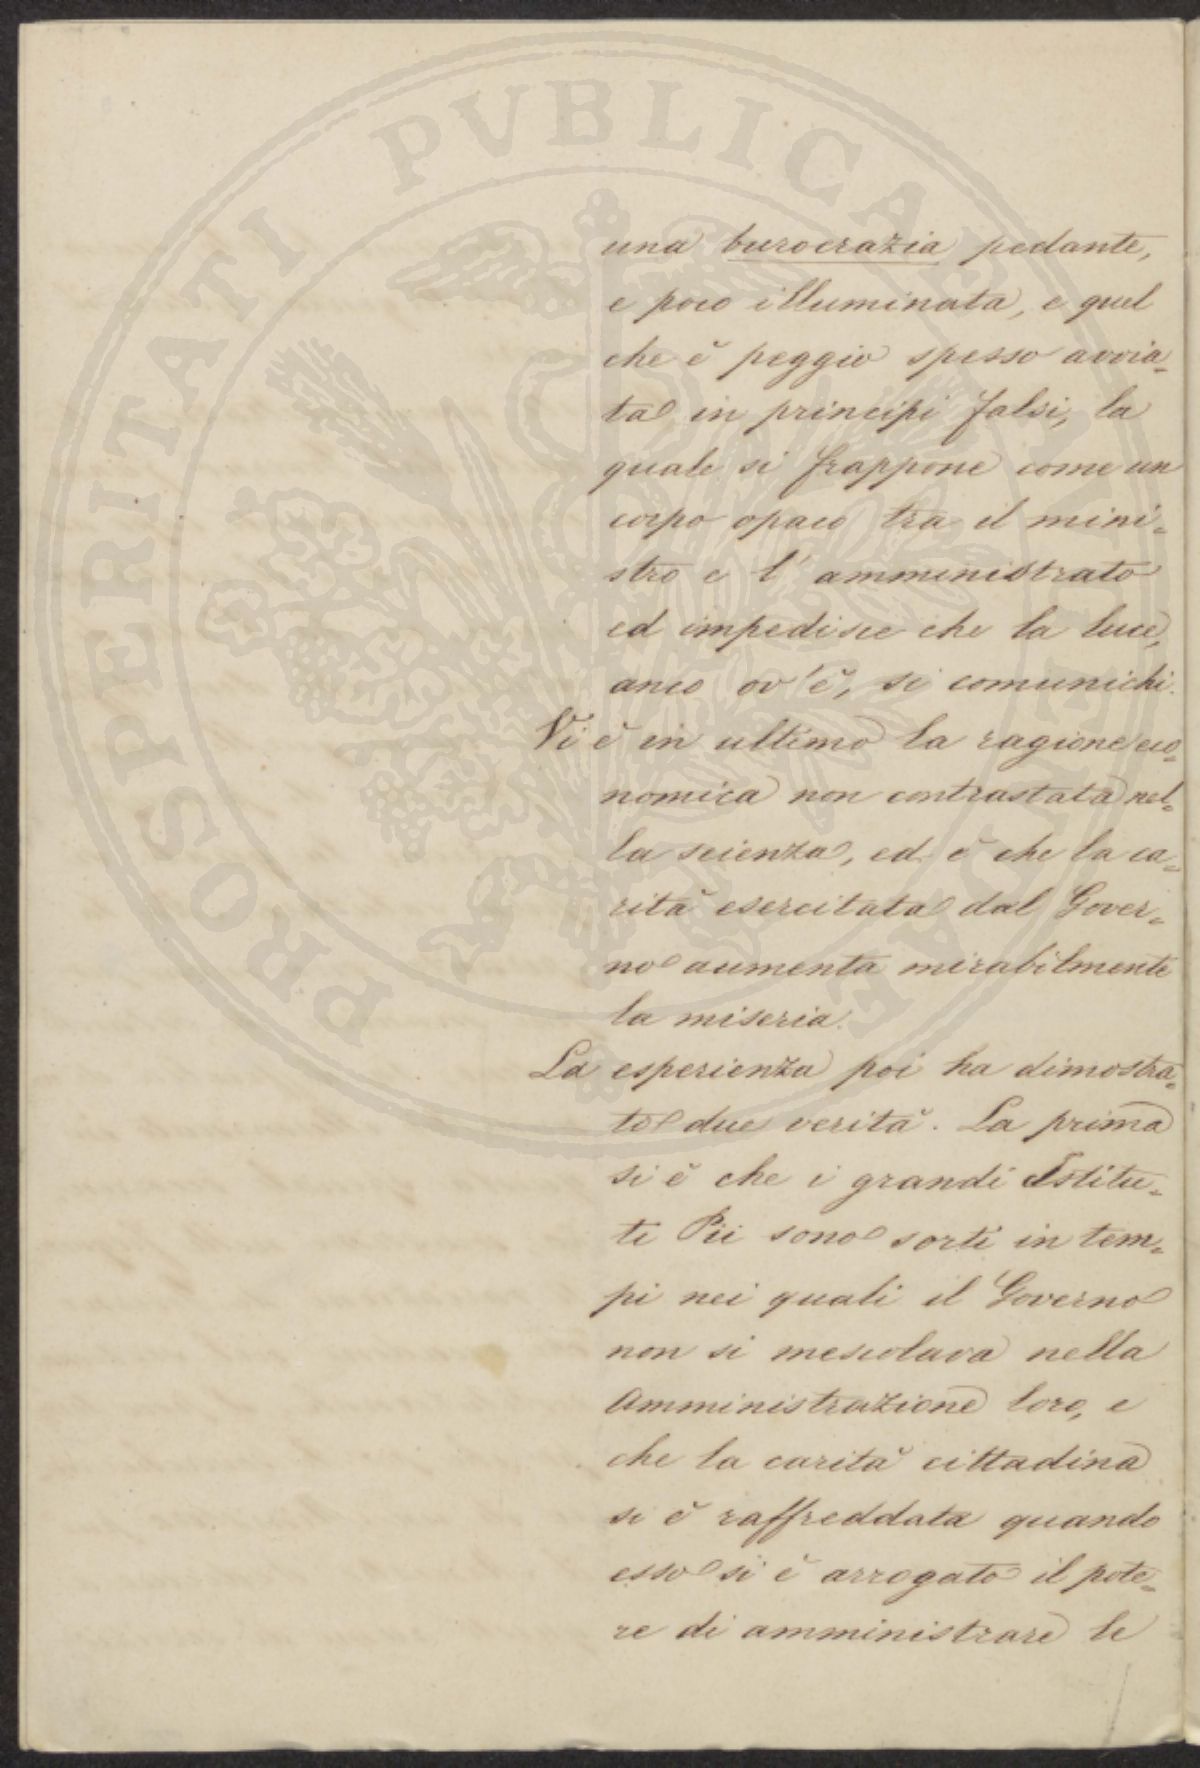 PROSPERITATI PVBLICAE AVGENDAE
una burocrazia pedante,
e poco illuminata, e quel
che è peggio spesso avvia=
ta in principi falsi, la
quale si frappone come un
corpo opaco tra il mini=
stro e l'amministrato
ed impedisce che la luce,
anco ov'è, si comunichi.
Vi è in ultimo la ragione eco=
nomica non contrastata nel=
la scienza, ed è che la ca=
rità esercitata dal Gover=
no aumenta mirabilmente
la miseria.
La esperienza poi ha dimostra=
to due verità. La prima
si è che i grandi Istitu=
ti Pii sono sorti in tem=
pi nei quali il Governo
non si mescolava nella
Amministrazione loro, e
che la carità cittadina
si è raffreddata quando
esso si è arrogato il pote=
re di amministrare le